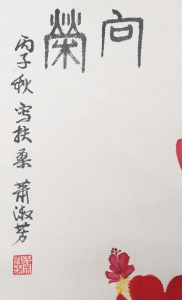 向榮
丙子秋寫扶桑蕭淑芳